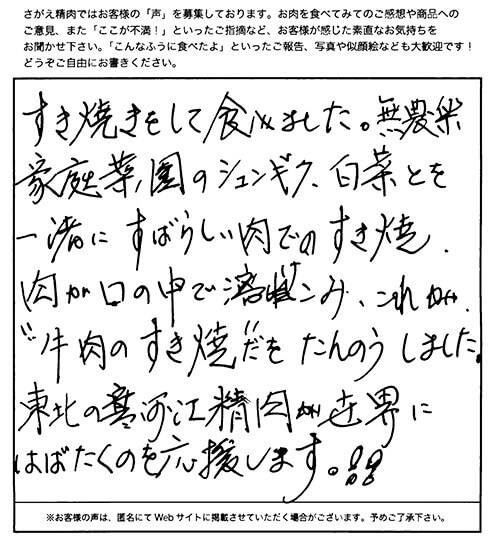 さがえ精肉ではお客様の「声」を募集しております。お肉を食べてみてのご感想や商品への
ご意見、また「ここが不満！」といったご指摘など、お客様が感じた素直なお気持ちを
お聞かせ下さい。「こんなふうに食べたよ」といったご報告、写真や似顔絵なども大歓迎です！
どうぞご自由にお書きください。
すき焼きをして食べました。無農薬
家庭菜園のシュンギク、白菜とを
一緒に すばらしい肉でのすき焼、
肉が口の中で溶けこみ、これが、
“牛肉のすき焼”だを たんのう しました。
東北の寒河江精肉が世界に
はばたくのを応援します。!!
※お客様の声は、匿名にてWebサイトに掲載させていただく場合がございます。予めご了承下さい。